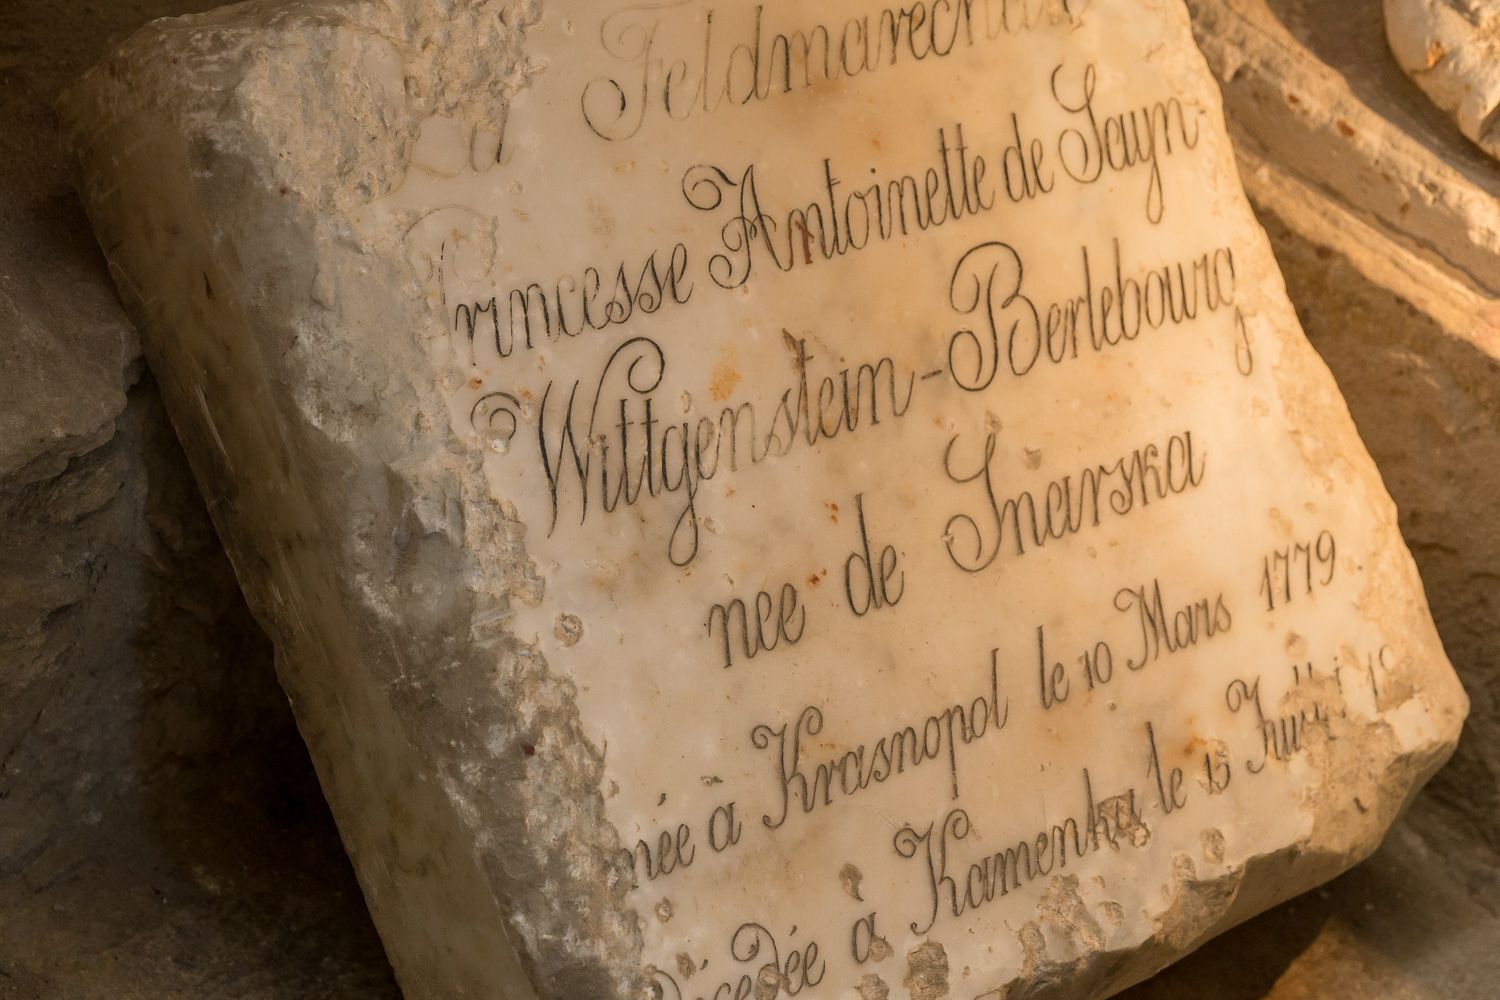 La Feldmarechale
Princesse Antoinette de Sayn-
Wittgenstein-Berlebourg
nee de Snarska
née à Krasnopol le 10 Mars 1779
Décedée à Kamenka le 15 Juillet